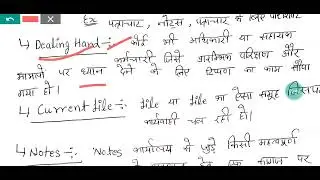 Ex पत्राचार, नोटस, पत्राचार के लिए
↳ Dealing Hand :- कोई भी अधिकारी या सहायक
कर्मचारी जिसे प्रारम्भिक परिक्षण और
मामलों पर ध्यान देने के लिए टिप्पण का काम सौंपा
गया हो।
↳ Current file :- file या file का ऐसा समूह जिसपर
कार्यवाही चल रही हो।
↳ Notes :- Notes कार्यालय में जुड़े किसी महत्वपूर्ण
एक कागज पर